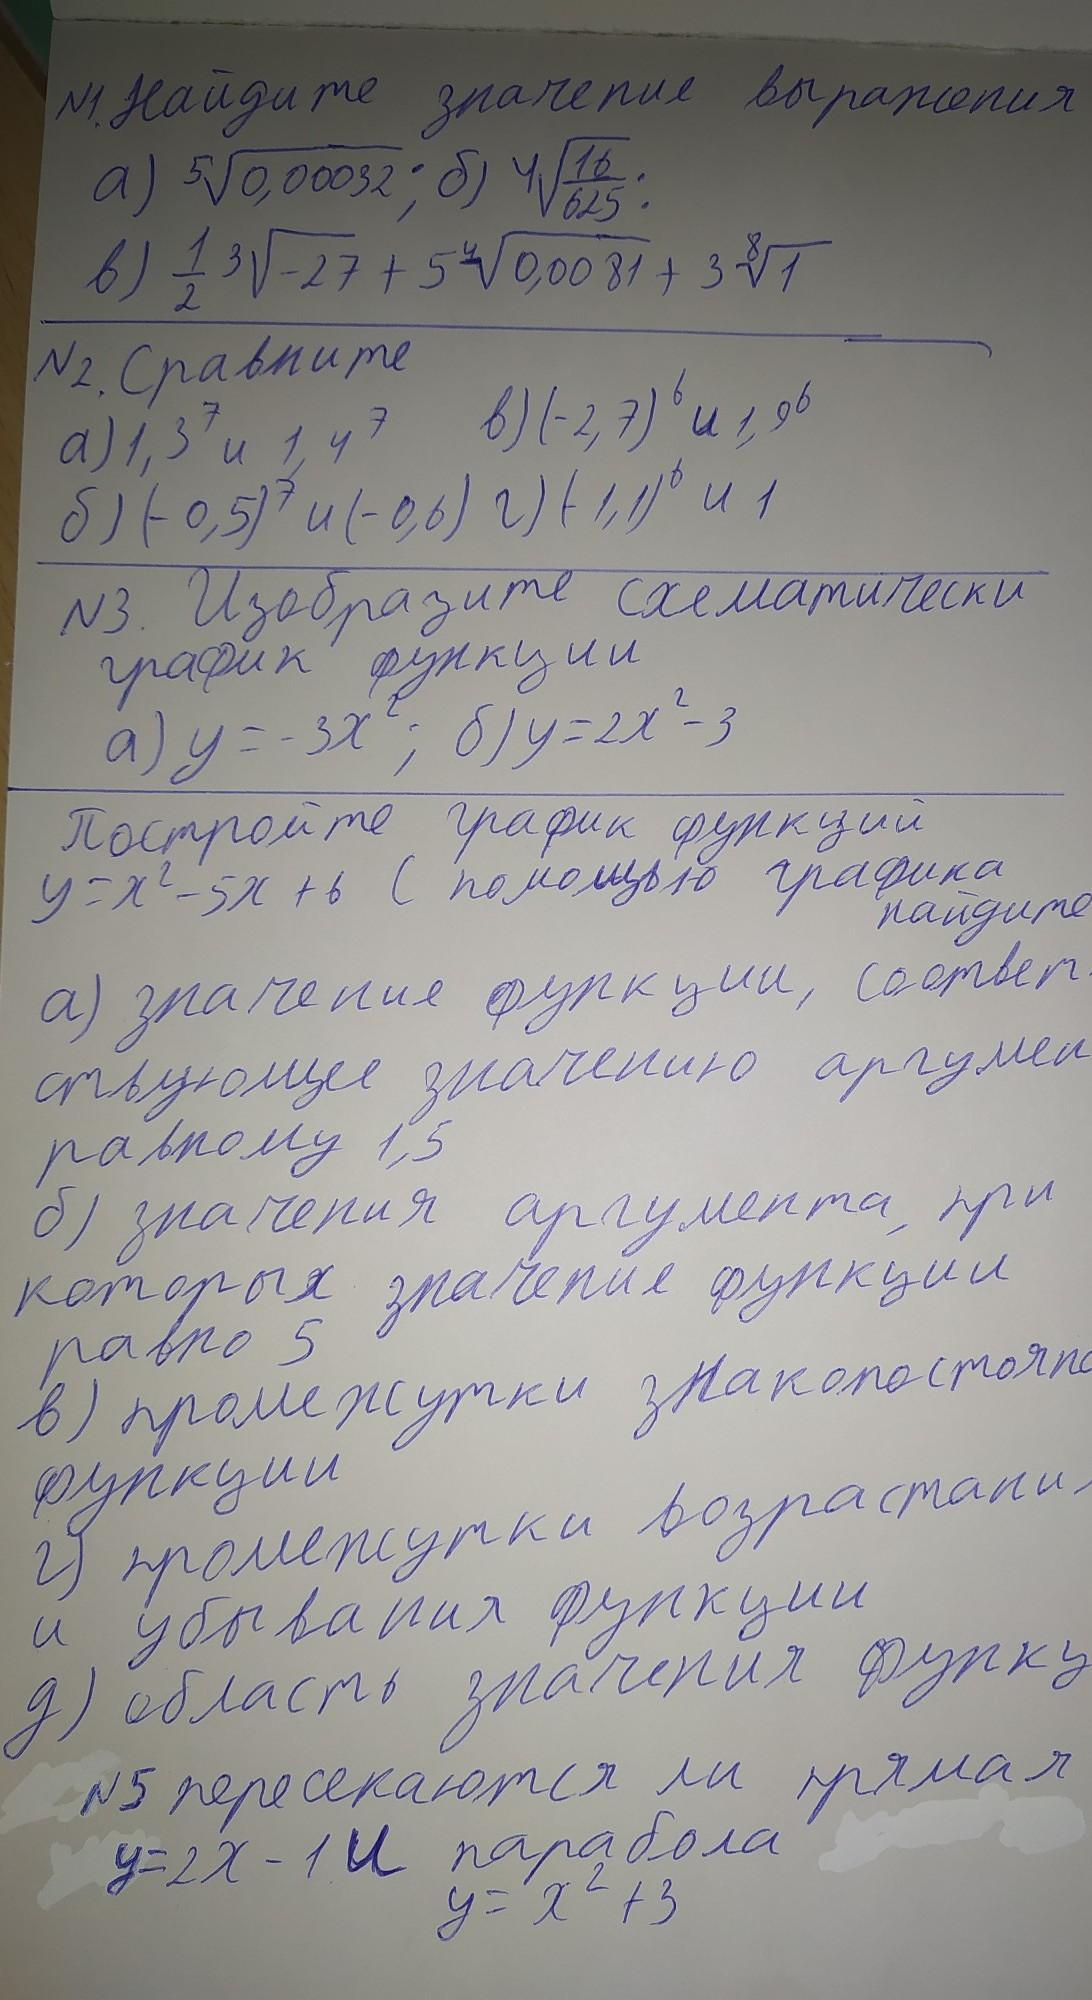 N1. Найдите значение выражения
а) ⁵√0,00032; б) ⁴√16/625;
в) 1/2 ³√-27 + 5 ⁴√0,0081 + 3 ⁸√1
N2. Сравните
а) 1,3⁷ и 1,4⁷ в) (-2,7)⁶ и 1,9⁶
б) (-0,5)⁷ и (-0,6) г) (-1,1)⁶ и 1
N3. Изобразите схематически
график функции
а) y = -3x²; б) y = 2x² - 3
Постройте график функций
y = x² - 5x + 6 С помощью графика
найдите
а) значение функции, соответ-
ствующее значению аргумен
равному 1,5
б) значения аргумента, при
которых значение функции
равно 5
в) промежутки знакопостоянс
функции
г) промежутки возрастани
и убывания функции
д) область значения функц
N5 пересекаются ли прямая
y = 2x - 1 и парабола
y = x² + 3